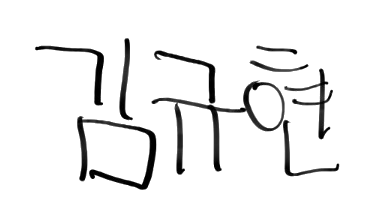 김규현